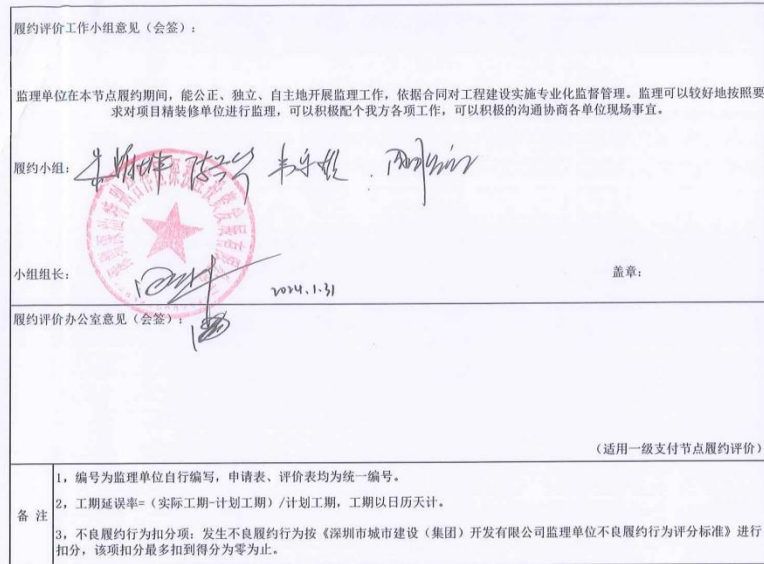 履约评价工作小组意见（会签）：
监理单位在本节点履约期间，能公正、独立、自主地开展监理工作，依据合同对工程建设实施专业化监督管理。监理可以较好地按照要
求对项目精装修单位进行监理，可以积极配个我方各项工作，可以积极的沟通协商各单位现场事宜。
履约小组：
小组组长：
2024.1.31
盖章：
履约评价办公室意见（会签）：
（适用一级支付节点履约评价）
备 注
1，编号为监理单位自行编写，申请表、评价表均为统一编号。
2，工期延误率=（实际工期-计划工期）/计划工期，工期以日历天计。
3，不良履约行为扣分项：发生不良履约行为按《深圳市城市建设（集团）开发有限公司监理单位不良履约行为评分标准》进行
扣分，该项扣分最多扣到得分为零为止。